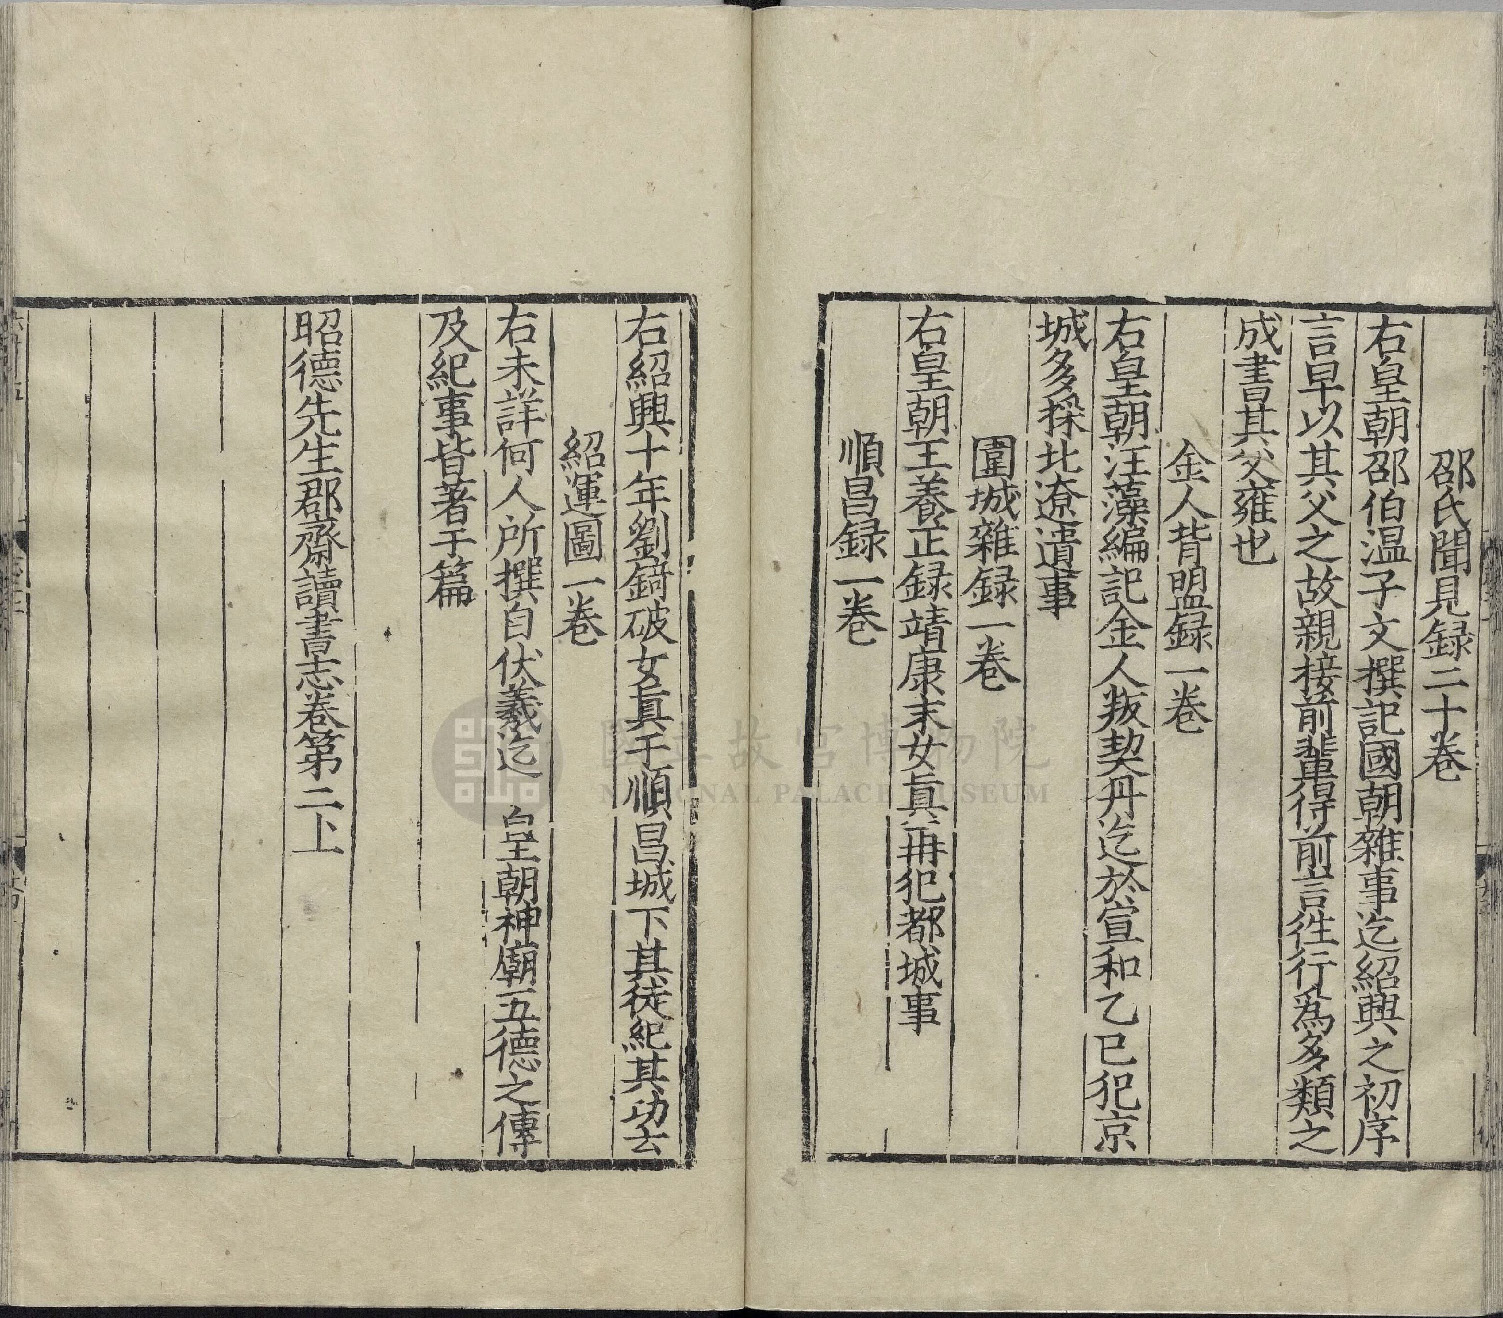 邵氏聞見録二十卷
右皇朝邵伯温子文撰記國朝雜事迄紹興之初序
言早以其父之故親接前輩得前言徃行爲多類之
成書其父雍也
金人背盟録一卷
右皇朝汪藻編記金人叛契丹迄於宣和乙巳犯京
城多採北遼遺事
圍城雜録一卷
右皇朝王養正録靖康末女眞再犯都城事
順昌録一卷
右紹興十年劉錡破女眞于順昌城下其徒紀其功云
紹運圖一卷
右未詳何人所撰自伏羲迄 皇朝神廟五德之傳
及紀事皆著于篇
昭德先生郡齋讀書志卷第二上
國立故宮博物院
NATIONAL PALACE MUSEUM